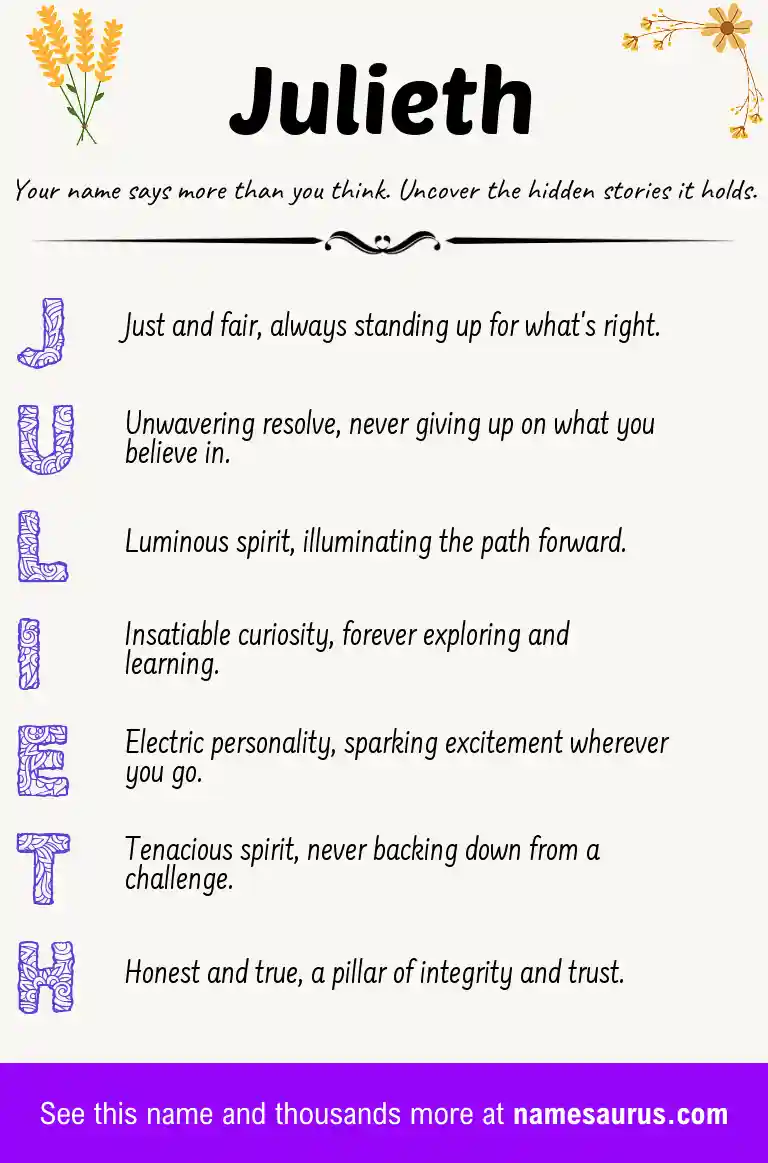 Julieth
Your name says more than you think. Uncover the hidden stories it holds.
J
Just and fair, always standing up for what's right.
U
Unwavering resolve, never giving up on what you
believe in.
L
Luminous spirit, illuminating the path forward.
I
Insatiable curiosity, forever exploring and
learning.
E
Electric personality, sparking excitement wherever
you go.
T
Tenacious spirit, never backing down from a
challenge.
H
Honest and true, a pillar of integrity and trust.
See this name and thousands more at namesaurus.com